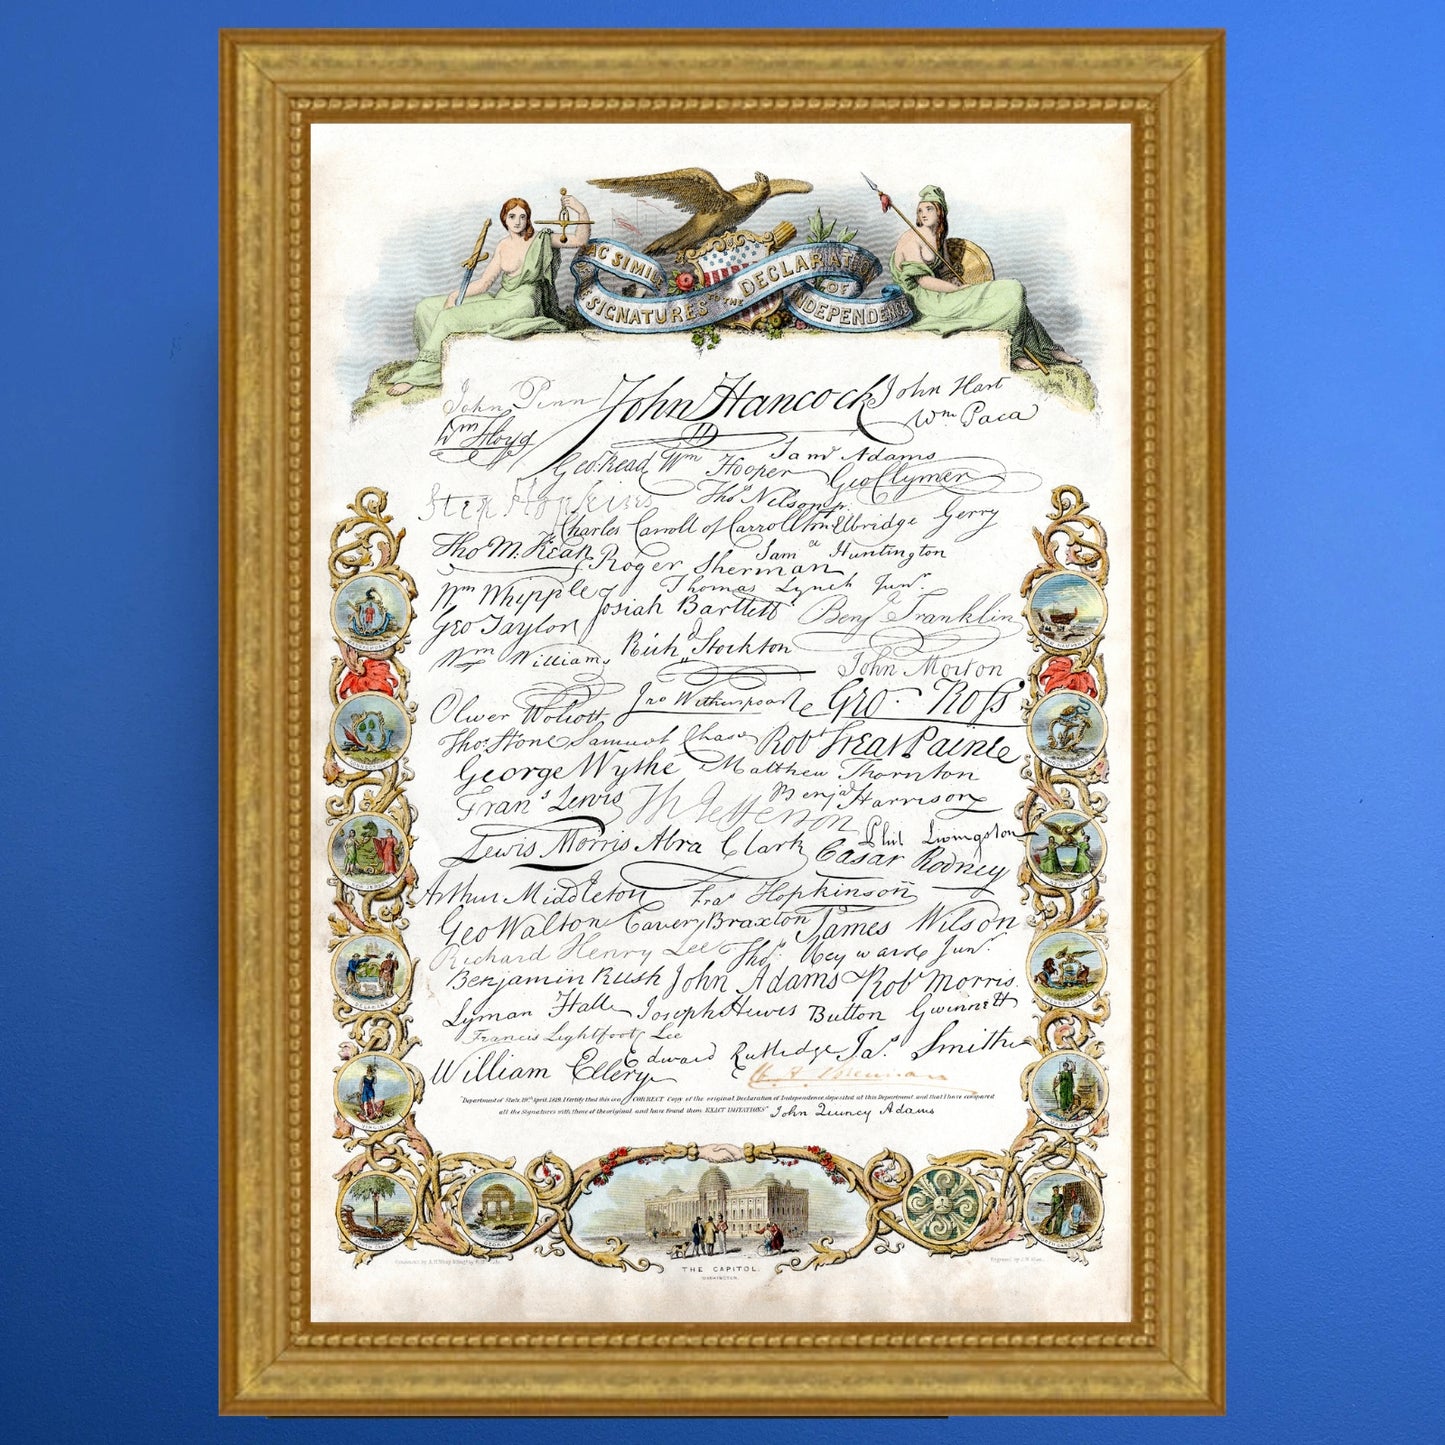 FAC SIMILE
OF THE SIGNATURES TO THE DECLARATION OF INDEPENDENCE
John Penn John Hancock John Hart
Wm Floyd Wm Paca
Geo. Read Wm Hooper Saml Adams
Geo Clymer
Step Hopkins Thos Nelson jr.
Charles Carroll of Carrollton Elbridge Gerry
Tho M. Kean Roger Sherman Saml Huntington
Wm Whipple Thomas Lynch Junr.
Geo Taylor Josiah Bartlett Benj Franklin
Wm Williams Richd Stockton John Morton
Oliver Wolcott Jno Witherspoon Geo. Ross
Thos. Stone Samuel Chase Robt Treat Paine
George Wythe Matthew Thornton
Frans Lewis Th Jefferson Benja Harrison
Lewis Morris Abra Clark Phil Livingston
Cæsar Rodney
Arthur Middleton Fras Hopkinson
Geo Walton Carter Braxton James Wilson
Richard Henry Lee Thos. Heyward Junr.
Benjamin Rush John Adams Robt Morris
Lyman Hall Joseph Hewes Button Gwinnett
Francis Lightfoot Lee
William Ellery Edward Rutledge Jas. Smith
"Department of State, 19th April, 1819. I Certify that this is a CORRECT Copy of the original Declaration of Independence deposited at this Department and that I have compared
all the Signatures with those of the original and have found them EXACT IMITATIONS" John Quincy Adams
VIRGINIA
MARYLAND
GEORGIA
THE CAPITOL.
WASHINGTON.